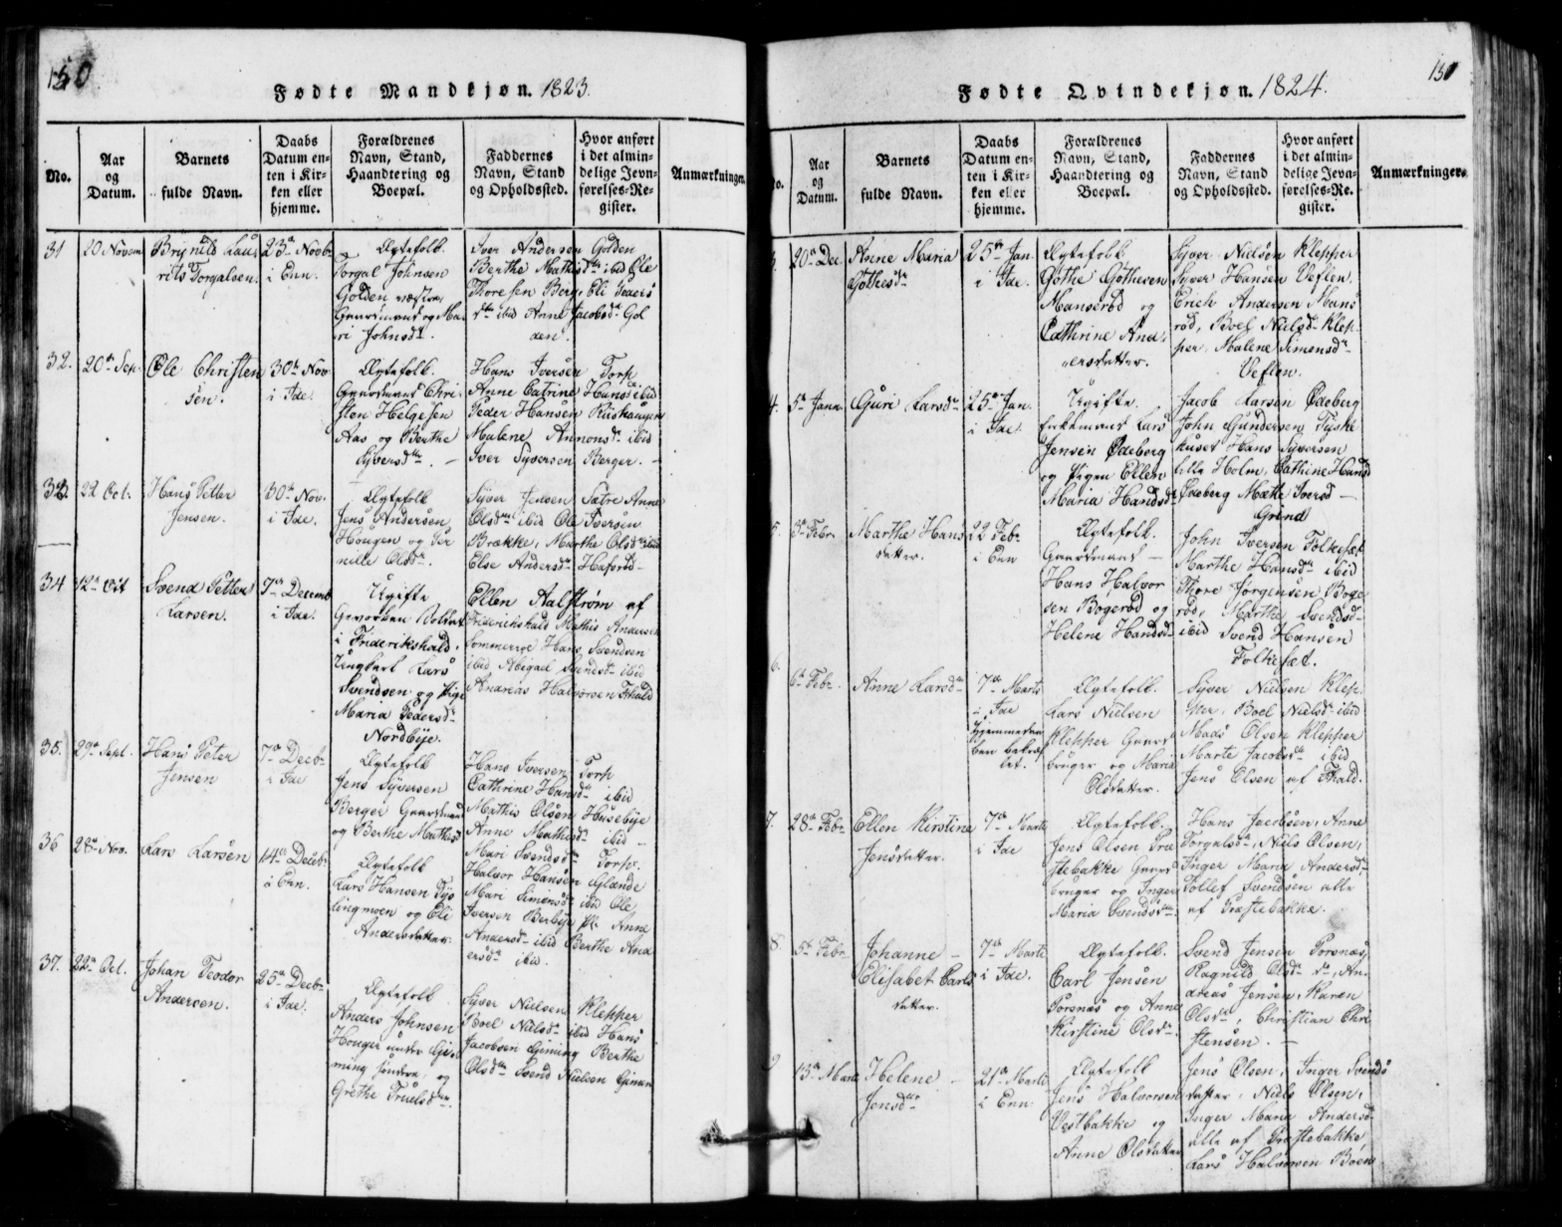 150
Fødte Mandkjøn. 1823.
No.
Aar
og
Datum.
Barnets
fulde Navn.
Daabs
Datum en-
ten i Kir-
ken eller
hjemme.
Forældrenes
Navn, Stand,
Haandtering og
Boepæl.
Faddernes
Navn, Stand
og Opholdssted.
Hvor anført
i det almin-
delige Jevn-
førelses-Re-
gister.
Anmærkninger.
31
20 Novem
Brynild Lau-
rits Torgalsen.
23de Novbr
i Enn.
Ægtefolk
Torgal Johnsen
Golden
Gaardmand og Ma-
ri Johnsdr.
Iver Andersen Golden
Berthe Mathisdtr ibid Ole
Thoresen Berg, Eli Peders
dtr ibid Anne Jacobsdr Gol
den.
32.
20de Sep.
Ole Christen
sen.
30te Nov
i Ide.
Ægtefolk.
Gaardmand Chri-
sten Helgesen
Aas og Berthe
Syversdtr. -
Hans Iversen Torp
Anne Catrine Hansdr ibid
Peder Hansen Riishaugen
Malene Amonsdr ibid
Iver Syversen Berger. -
33.
22 Oct.
Hans Petter
Jensen.
30te Nov.
i Ide.
Ægtefolk
Jens Andersen
Hougen og Per
nille Olsdr.
Syver Jensen Sætre Anne
Olsdtr ibid Ole Iversen
Brække, Marthe Olsdtr ibid
Else Andersdr Hafsrød -
34
12te Oct
Svend Petter
Larsen.
7de Decemb
i Ide.
Ugifte
Gevorben Soldat
i Friderikshald,
Ungkarl Lars
Svendsen og Pige
Maria Pedersdr
Nordbye.
Ellen Aalstrøm af
Friderikshald Mathis Andersen
Sommerroe Hans Svendsen
ibid Abigael Svendsdr ibid
Andreas Halvorsen Fhald
35.
29de Sept.
Hans Peter
Jensen
7de Decbr
i Ide
Ægtefolk
Jens Syversen
Berger Gaardmand
og Berthe Mathisd
Hans Iversen Torp
Cathrine Hansdr ibid
Mathis Olsen Husebye
Anne Mathisdr ibid -
Mari Svendsdr Torp.
36
28de Nov.
Lars Larsen
14de Decbr
i Enn.
Ægtefolk
Lars Hansen Tys
lingmoen og Eli
Andersdatter.
Halvor Hansen Glænde
Mari Simonsdr ibid Ole
Iversen Berbye Anne
Andersdr ibid Berthe And
ersdr ibid.
37.
22de Oct.
Johan Teodor
Andersen.
25de Decbr
i Ide.
Ægtefolk
Anders Johnsen
Houger under Gi-
ming søndre, og
Grethe Truelsdtr.
Syver Nielsen Klepper
Boel Nielsdr ibid Hans
Jacobsen Giming Berthe
Olsdtr Svend Nielsen Giman
151
Fødte Qvindekjøn. 1824.
No.
Aar
og
Datum.
Barnets
fulde Navn.
Daabs
Datum en-
ten i Kir-
ken eller
hjemme.
Forældrenes
Navn, Stand,
Haandtering og
Boepæl.
Faddernes
Navn, Stand
og Opholdssted.
Hvor anført
i det almin-
delige Jevn-
førelses-Re-
gister.
Anmærkninger.
3.
20de Dec.
Anne Maria
Gøthesdr
25de Jan.
i Ide.
Ægtefolk
Gøthe Gøthesen
Manserød og
Cathrine And-
ersdatter.
Syver Nielsen Klepper
Syver Hansen Veflen.
Erich Andersen Mans
rød, Boel Nielsdr Klep-
per, Malene Simonsdr
Veflen.
4.
5te Janr.
Guri Larsdr
25de Jan.
i Ide.
Ugifte.
Enkemand Lars
Jensen Ødeberg
og Pigen Ellen
Maria Hansdr
Jacob Larsen Ødeberg
John Gundersen Tyske
huset Hans Syversen
lille Holm, Cathrine Hansd
Ødeberg Mætte Iversd -
Grind
5.
3de Febr.
Marthe Hans
datter.
22 Febr
i Enn
Ægtefolk.
Gaardmand -
Hans Halvor
sen Bogerød og
Helene Hansdr
John Iversen Folkesæt
Marthe Hansdr ibid
Thore Jørgensen Boge
rød, Marthe Svendsd-
ibid Svend Hansen
Folkesæt.
6.
6te Febr.
Anne Larsdr
7de Marts
i Ide
hjemmedaa
ben bekræf
tet.
Ægtefolk.
Lars Nielsen
Klepper Gaard
bruger og Maria
Olsdatter.
Syver Nielsen Klep-
per, Boel Nielsdr ibid
Mads Olsen Klepper
Marte Jacobsdr ibid
Jens Olsen af Fhald.
7.
28de Febr
Ellen Kirstine
Jensdatter.
7de Marts
i Ide
Ægtefolk.
Jens Olsen Præ
stebakke Gaard
bruger og Inger
Maria Svendsdtr
Hans Jacobsen, Anne
Torgalsdr, Niels Olsen,
Inger Maria Andersdr
Tollef Svendsen alle
af Præstebakke.
8.
5te Febr
Johanne -
Elisabet Carls
datter.
7de Marts
i Ide.
Ægtefolk.
Carl Jensen
Torsnæs og Anne
Kirstine Olsdr.
Svend Jensen Torsnæs,
Ragnild Olsdr do, An-
dreas Jensen, Karen
Olsdr, Christian Chri
stensen. -
9
13de Marts
Helene -
Jensdtr
21de Marts
i Enn.
Ægtefolk
Jens Halvorsen
Vestbakke og
Anne Olsdatter
Jens Olsen, Inger Svends
datter, Niels Olsen,
Inger Maria Andersdr
alle af Præstebakke,
Lars Halvorsen Bøen